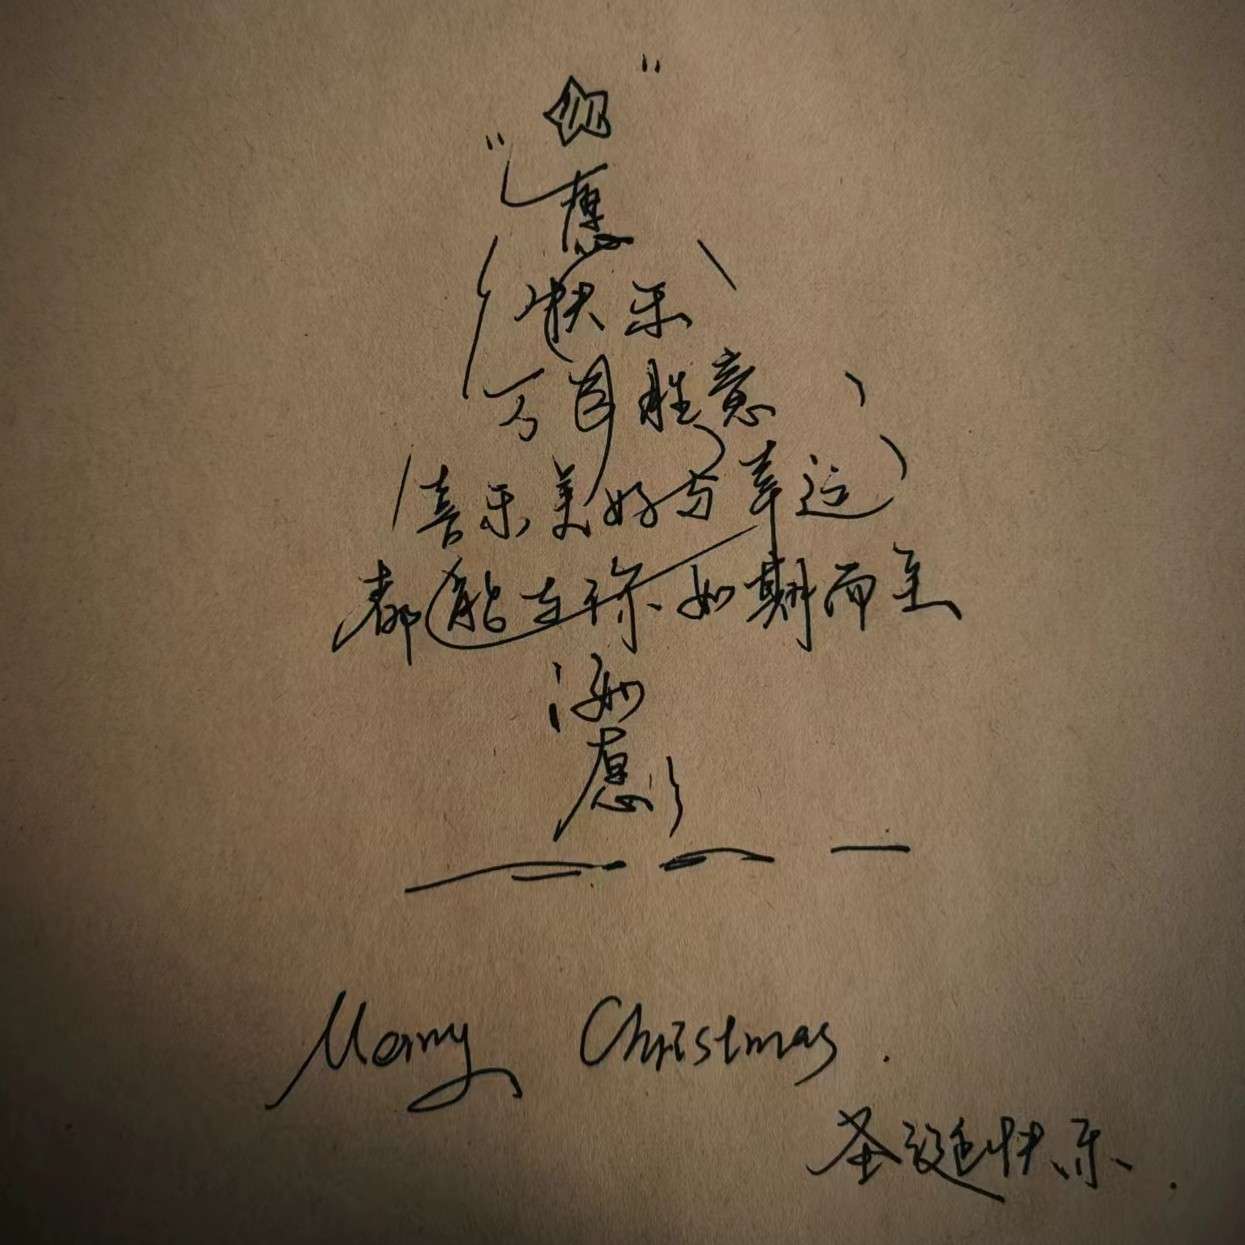 愿
快乐
万目胜意
喜乐美好与幸运
都能在你如期而至
如
愿
Merry Christmas.
圣诞快乐.